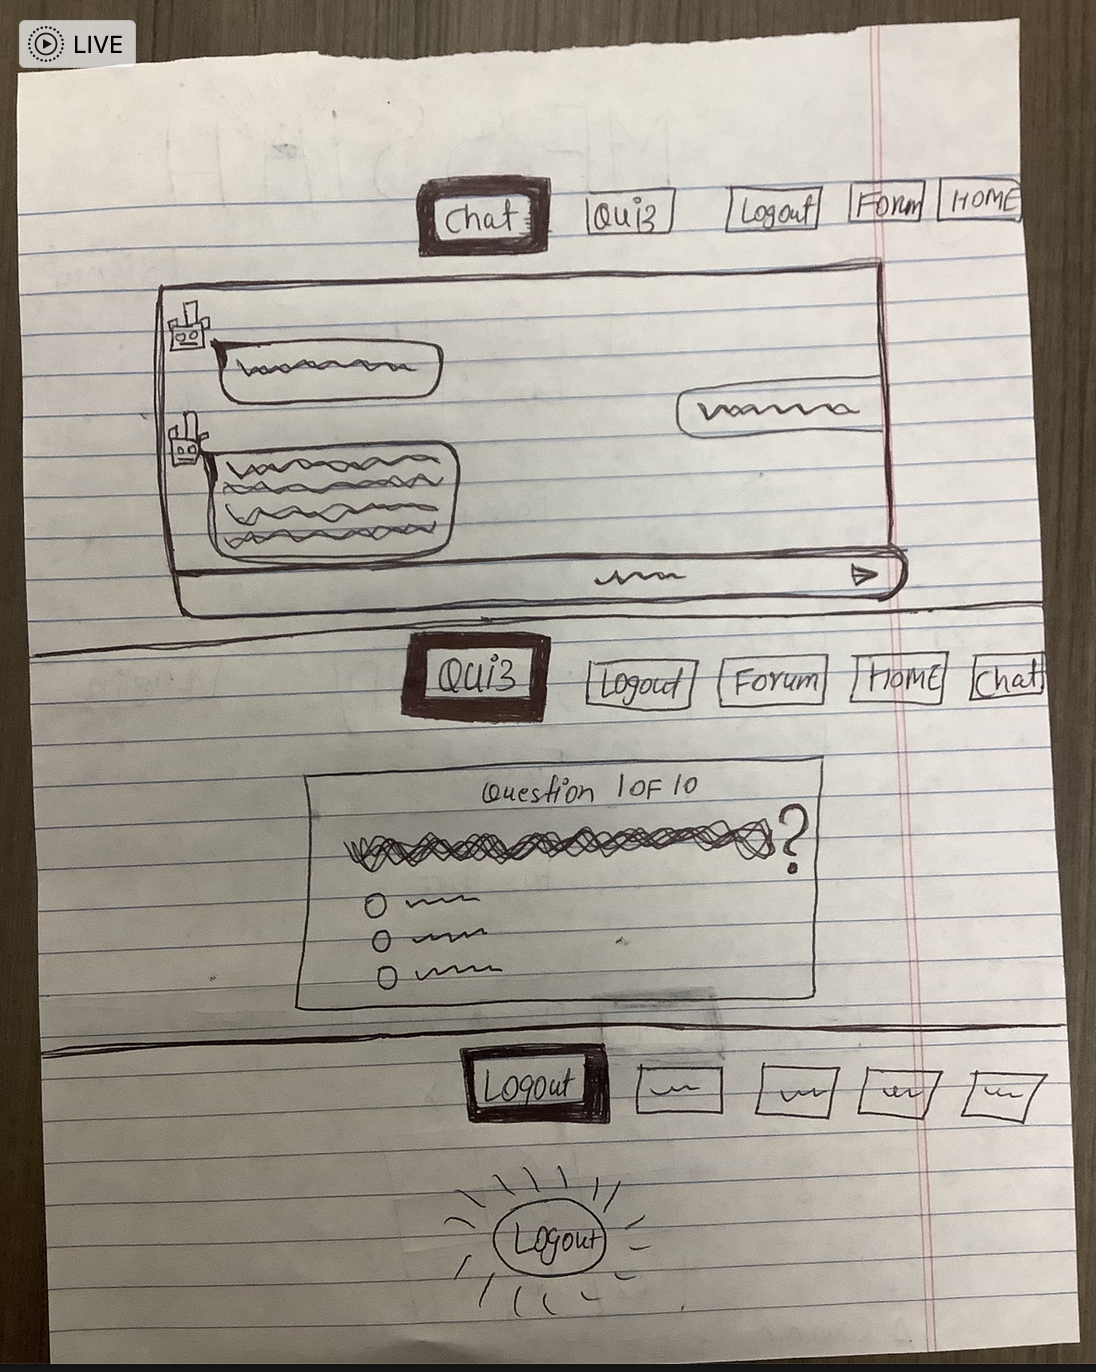 LIVE
Chat Quiz Logout Forum HOME
Quiz Logout Forum HOME Chat
Question 1 OF 10
?
Logout
Logout